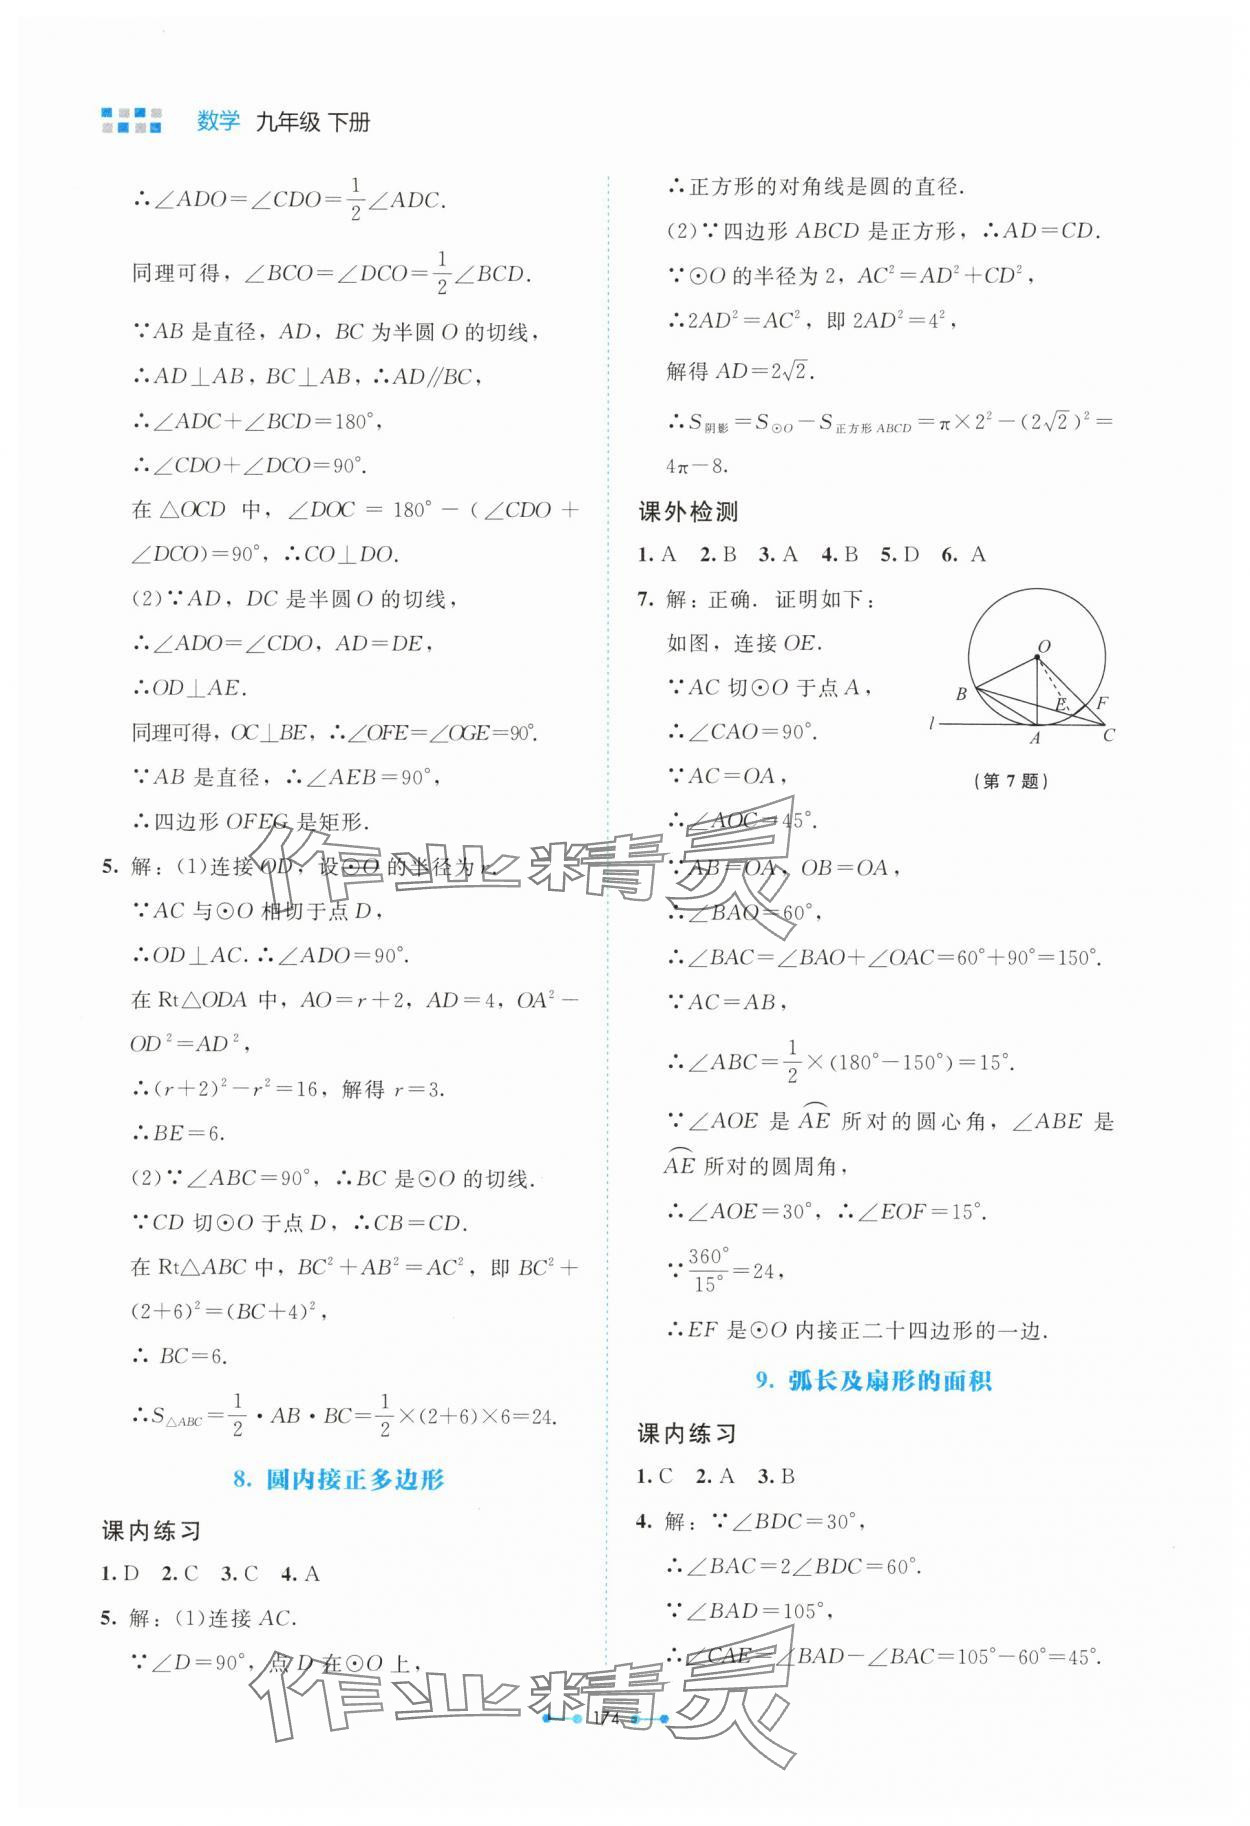 数学 九年级 下册
∴∠ADO=∠CDO=1/2∠ADC.
同理可得，∠BCO=∠DCO=1/2∠BCD.
∵AB 是直径，AD，BC 为半圆 O 的切线，
∴AD⊥AB，BC⊥AB，∴AD∥BC，
∴∠ADC+∠BCD=180°，
∴∠CDO+∠DCO=90°.
在 △OCD 中，∠DOC = 180° -(∠CDO +
∠DCO)=90°，∴CO⊥DO.
(2)∵AD，DC 是半圆 O 的切线，
∴∠ADO=∠CDO，AD=DE，
∴OD⊥AE.
同理可得，OC⊥BE，∴∠OFE=∠OGE=90°.
∵AB 是直径，∴∠AEB=90°，
∴四边形 OFEG 是矩形.
5. 解：(1)连接 OD，设⊙O 的半径为 r.
∵AC 与⊙O 相切于点 D，
∴OD⊥AC.∴∠ADO=90°.
在 Rt△ODA 中，AO=r+2，AD=4，OA²-
OD²=AD²，
∴(r+2)²-r²=16，解得 r=3.
∴BE=6.
(2)∵∠ABC=90°，∴BC 是⊙O 的切线.
∵CD 切⊙O 于点 D，∴CB=CD.
在 Rt△ABC 中，BC²+AB²=AC²，即 BC²+
(2+6)²=(BC+4)²，
∴ BC=6.
∴S△ABC=1/2·AB·BC=1/2×(2+6)×6=24.
8. 圆内接正多边形
课内练习
1. D 2. C 3. C 4. A
5. 解：(1)连接 AC.
∵∠D=90°，点 D 在⊙O 上，
∴正方形的对角线是圆的直径.
(2)∵四边形 ABCD 是正方形，∴AD=CD.
∵⊙O 的半径为 2，AC²=AD²+CD²，
∴2AD²=AC²，即 2AD²=4²，
解得 AD=2√2.
∴S阴影=S⊙O-S正方形ABCD=π×2²-(2√2)²=
4π-8.
课外检测
1. A 2. B 3. A 4. B 5. D 6. A
7. 解：正确. 证明如下：
如图，连接 OE.
∵AC 切⊙O 于点 A，
∴∠CAO=90°.
∵AC=OA，
∴∠AOC=45°.
O
B
E
F
l
A
C
(第 7 题)
∵AB=OA，OB=OA，
∴∠BAO=60°，
∴∠BAC=∠BAO+∠OAC=60°+90°=150°.
∵AC=AB，
∴∠ABC=1/2×(180°-150°)=15°.
∵∠AOE 是 ⌒AE 所对的圆心角，∠ABE 是
⌒AE 所对的圆周角，
∴∠AOE=30°，∴∠EOF=15°.
∵360°/15°=24，
∴EF 是⊙O 内接正二十四边形的一边.
9. 弧长及扇形的面积
课内练习
1. C 2. A 3. B
4. 解：∵∠BDC=30°，
∴∠BAC=2∠BDC=60°.
∵∠BAD=105°，
∴∠CAE=∠BAD-∠BAC=105°-60°=45°.
174
作业精灵
作业精灵